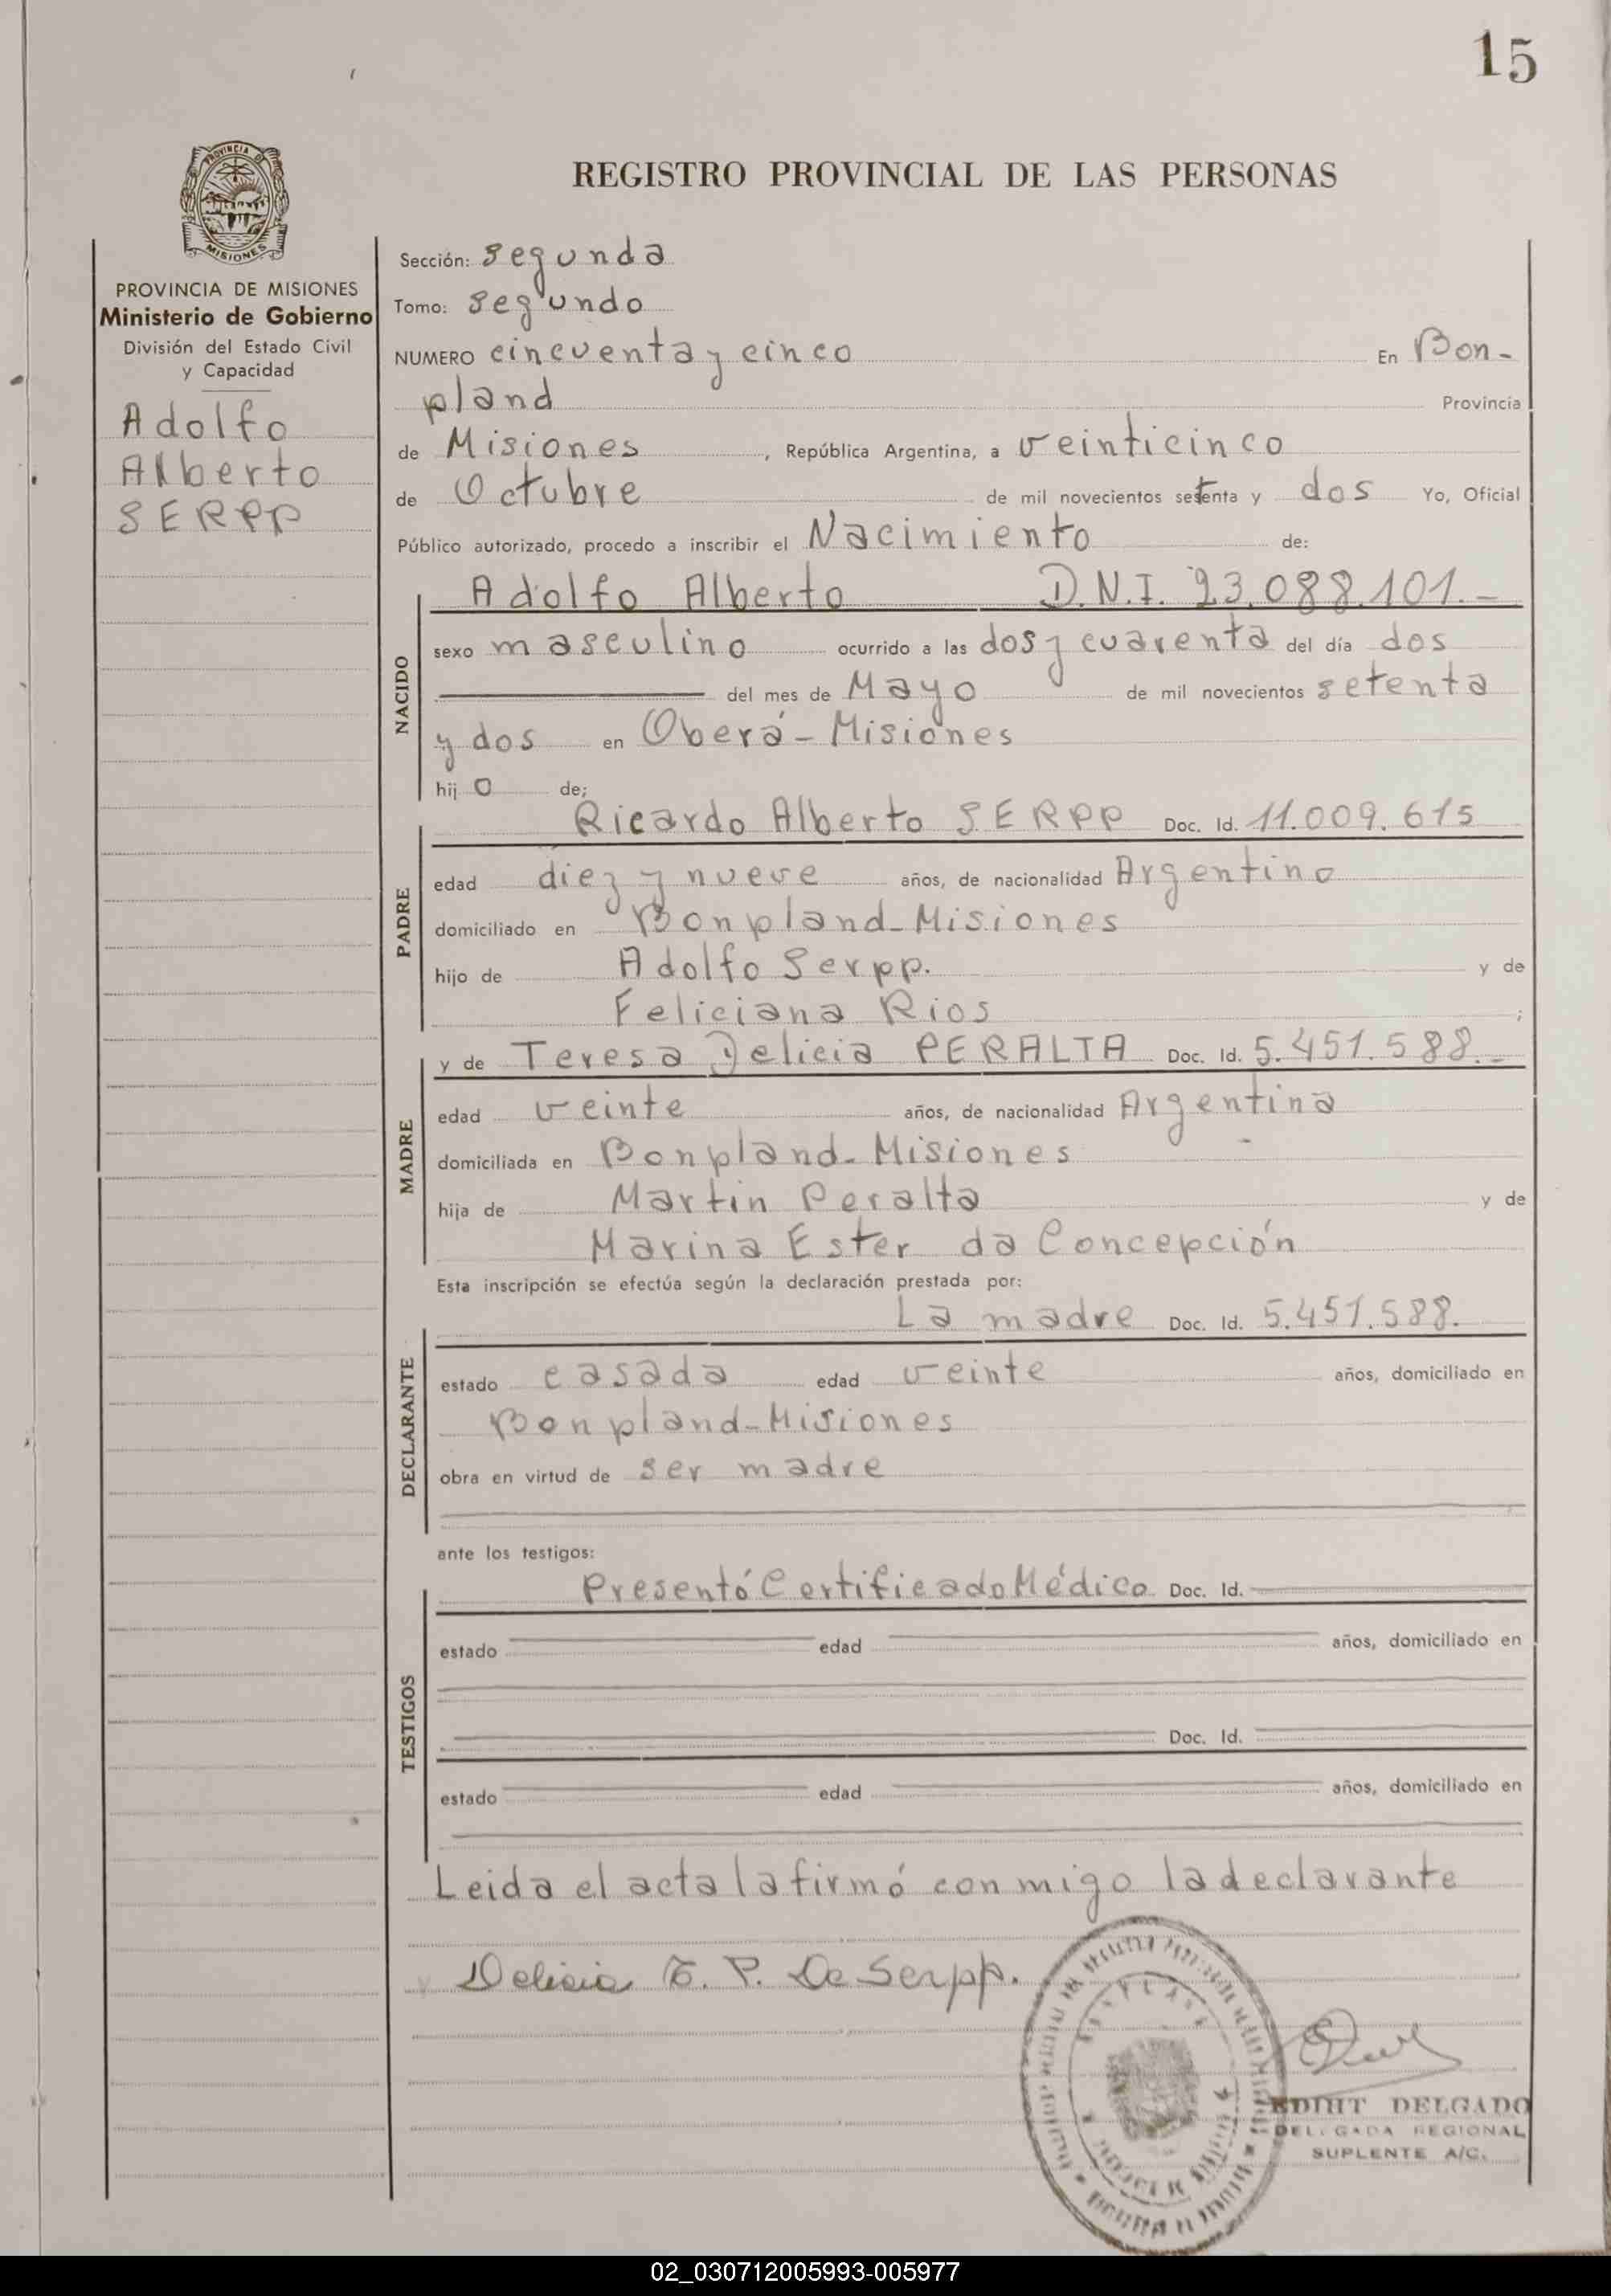 15
PROVINCIA DE
MISIONES
PROVINCIA DE MISIONES
Ministerio de Gobierno
División del Estado Civil
y Capacidad
Adolfo
Alberto
SERPP
REGISTRO PROVINCIAL DE LAS PERSONAS
Sección: Segunda
Tomo: Segundo
NUMERO cincuenta y cinco En Bon-
pland Provincia
de Misiones, República Argentina, a veinticinco
de Octubre de mil novecientos setenta y dos Yo, Oficial
Público autorizado, procedo a inscribir el Nacimiento de:
NACIDO
Adolfo Alberto D.N.I. 23.088.101.-
sexo masculino ocurrido a las dos y cuarenta del día dos
del mes de Mayo de mil novecientos setenta
y dos en Oberá-Misiones
hijo de;
PADRE
Ricardo Alberto SERPP Doc. Id. 11.009.615
edad diez y nueve años, de nacionalidad Argentino
domiciliado en Bonpland-Misiones
hijo de Adolfo Serpp. y de
Feliciana Rios ;
MADRE
y de Teresa Delicia PERALTA Doc. Id. 5.451.588.-
edad veinte años, de nacionalidad Argentina
domiciliada en Bonpland-Misiones
hija de Martin Peralta y de
Marina Ester da Concepción
Esta inscripción se efectúa según la declaración prestada por:
DECLARANTE
La madre Doc. Id. 5.451.588.
estado casada edad veinte años, domiciliado en
Bonpland-Misiones
obra en virtud de ser madre
ante los testigos:
TESTIGOS
Presentó Certificado Médico Doc. Id.
estado edad años, domiciliado en
Doc. Id.
estado edad años, domiciliado en
Leida el acta la firmó conmigo la declarante
Delicia T. P. De Serpp.
EDIHT DELGADO
DELEGADA REGIONAL
SUPLENTE A/C.
02_030712005993-005977